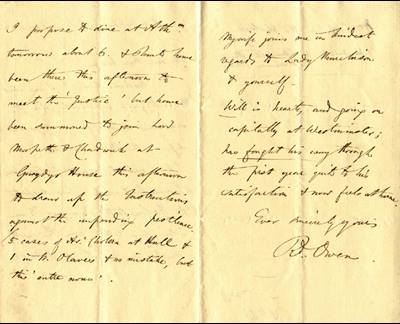 I propose to dine at Athm
tomorrow about 6. & should have
been there this afternoon to
meet the 'Justice' but have
been summoned to join Lord
Morpeth & Chadwick at
Gwydyr House this afternoon
to draw up the Instructions
against the impending pestilence.
5 cases of As. Cholera at Hull &
1 in St. Olaves & no mistake, but
this 'entre nous'.
My wife joins me in kindest
regards to Lady Murchison
& yourself.
Will is hearty and going on
capitally at Westminster;
has fought his way through
the first year quite to his
satisfaction & now feels at home.
Ever sincerely yours
Rd. Owen